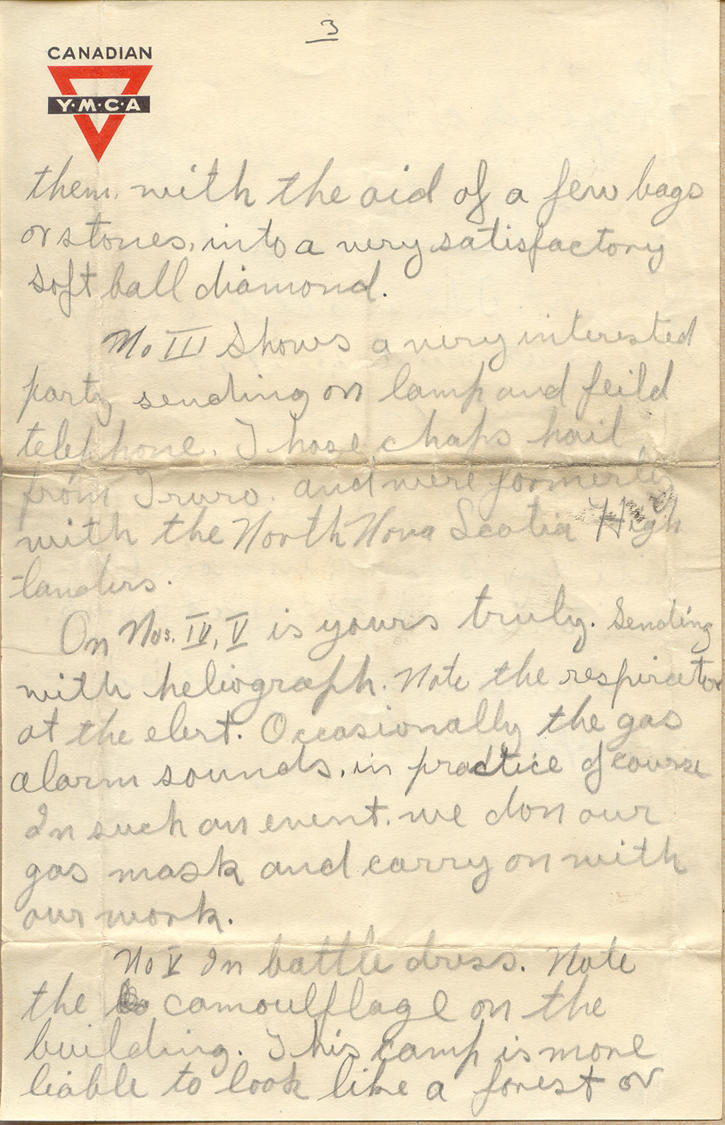 3
CANADIAN
Y·M·C·A
them, with the aid of a few bags
or stones, into a very satisfactory
soft ball diamond.
No III Shows a very interested
party sending on lamp and feild
telephone. Those chaps hail
from Truro. and were formerly
with the North Nova Scotia High
landers.
On Nos. IV, V is yours truly. Sending
with heliograph. Note the respirator
at the elert. Occasionally the gas
alarm sounds, in practice of course
In such an event, we don our
gas mask and carry on with
our work.
No V In battle dress. Note
the camoulflage on the
building. This camp is more
liable to look like a forest or